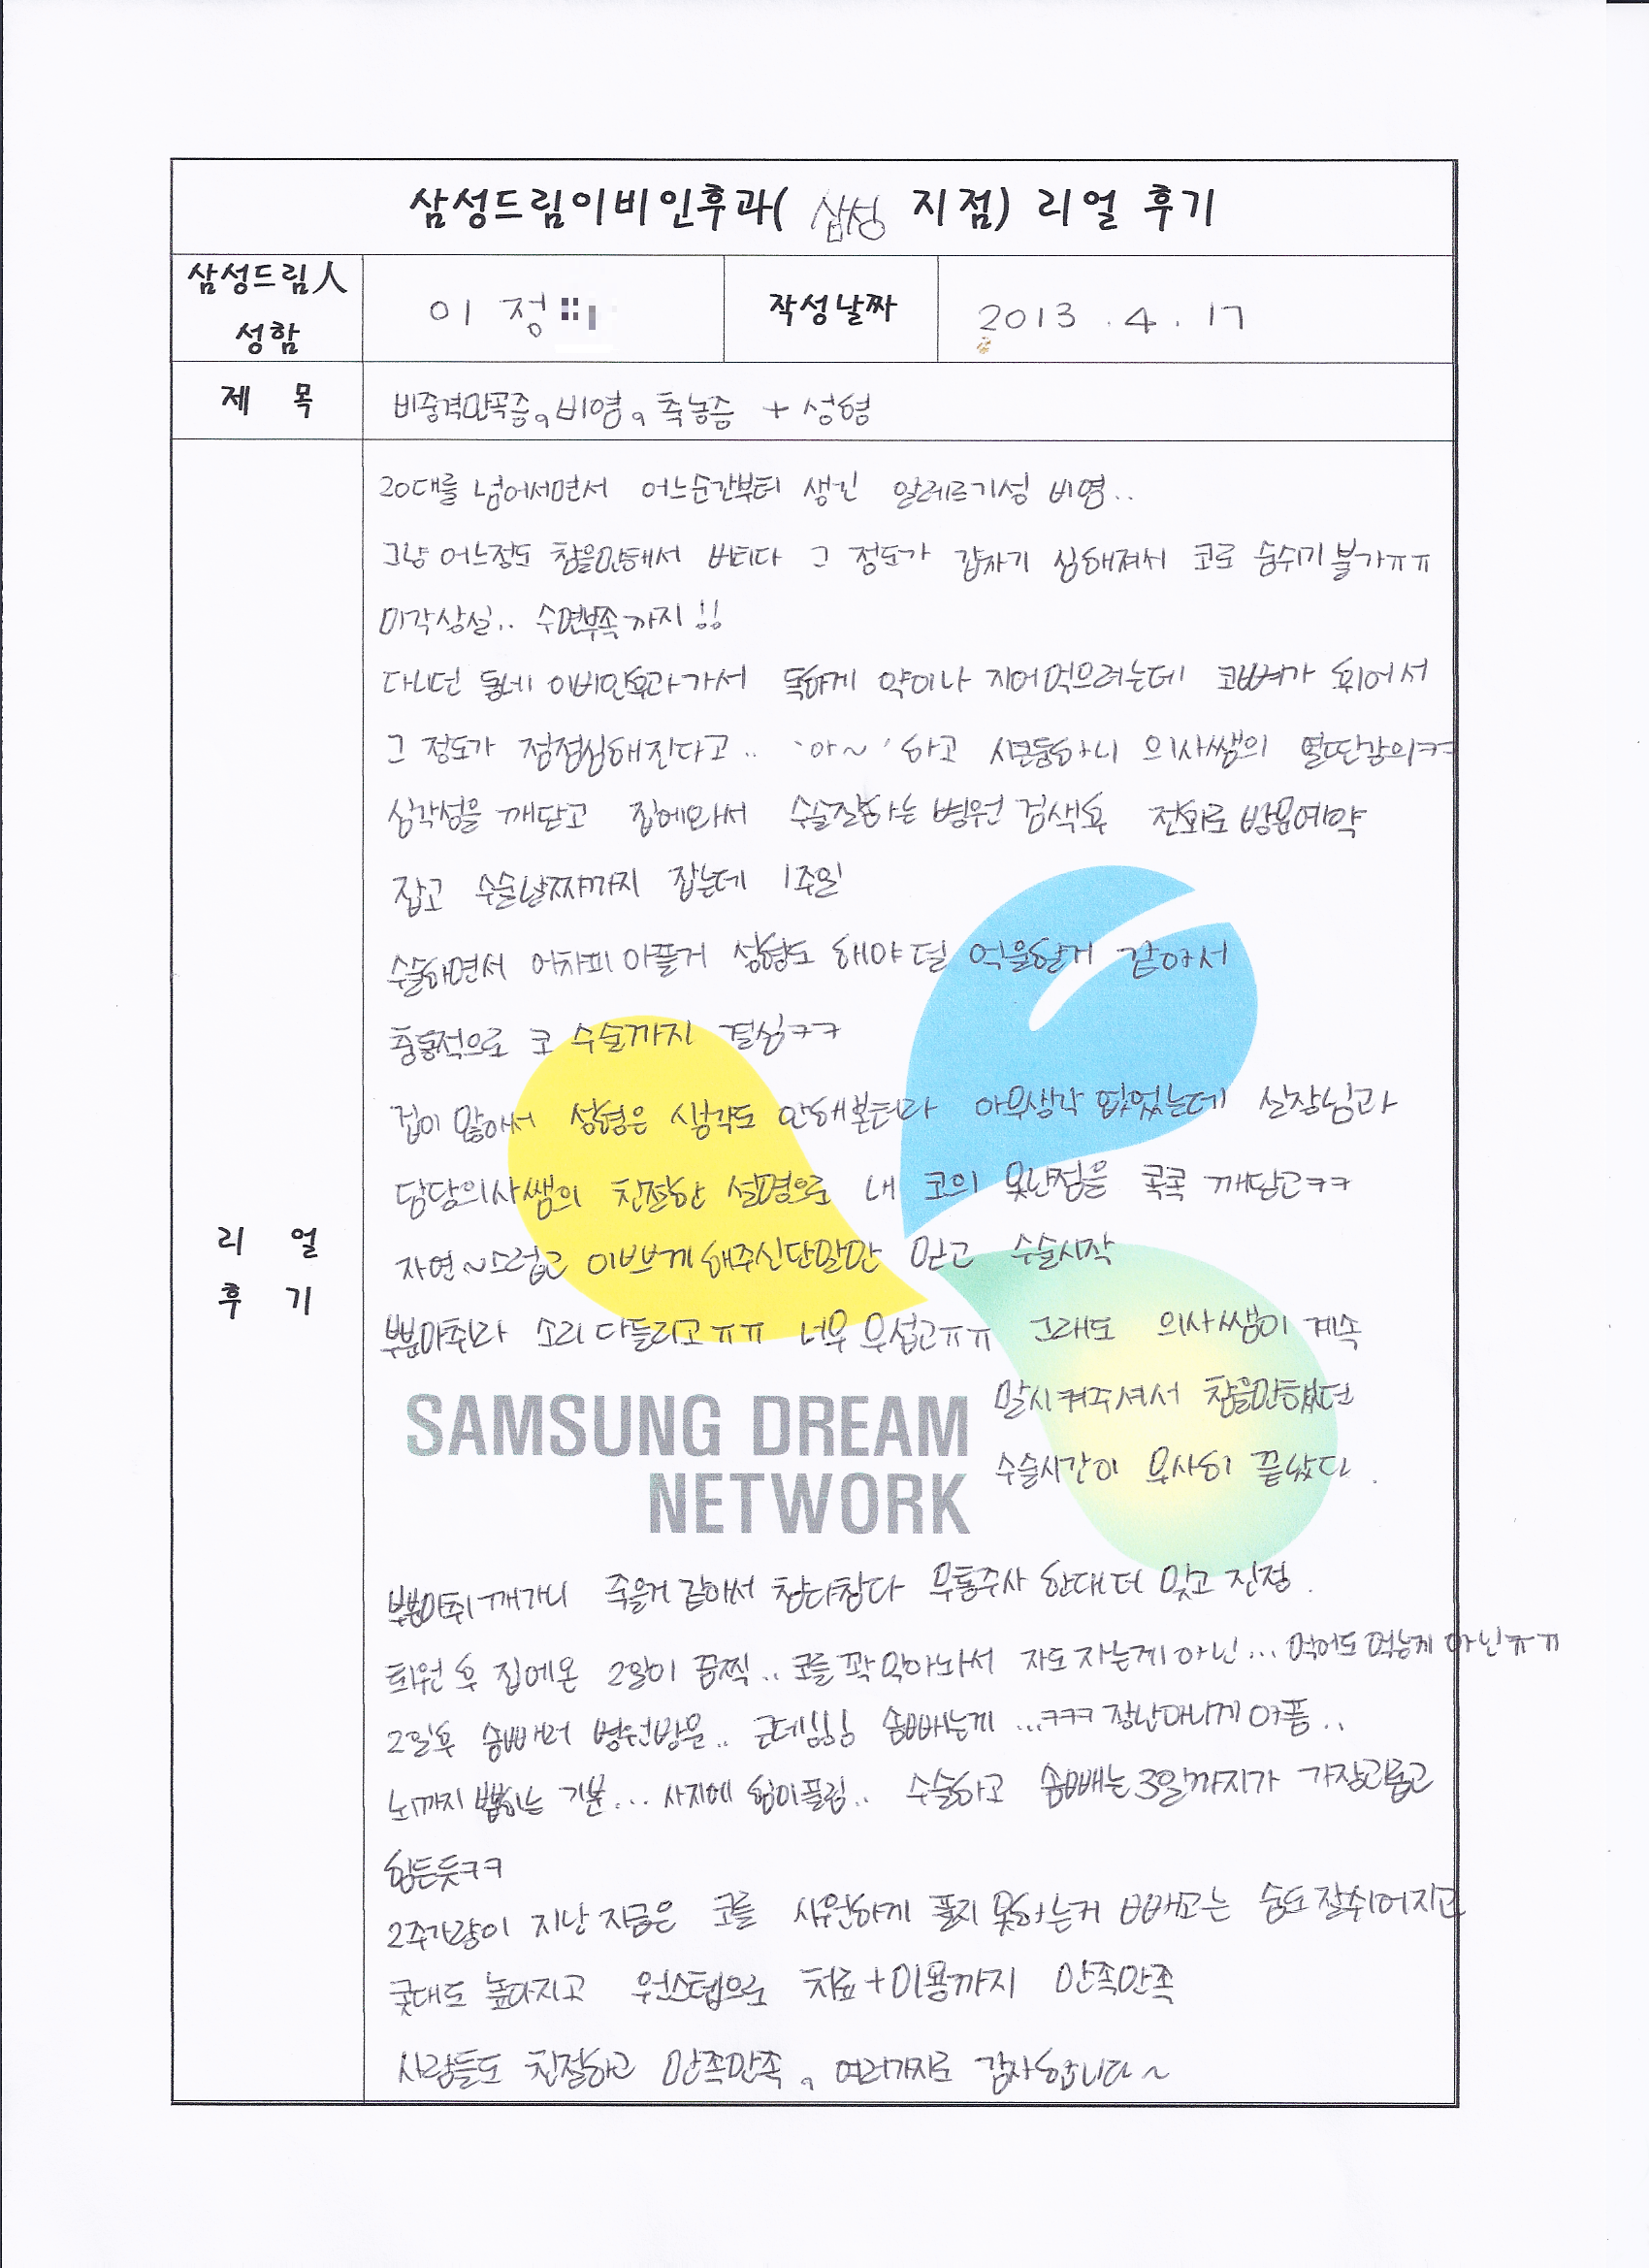 삼성드림이비인후과( 삼성 지점) 리얼 후기
삼성드림人
성함
이 정
작성날짜
2013 . 4 . 17
제 목
비중격만곡증, 비염, 축농증 + 성형
20대를 넘어서면서 어느순간부터 생긴 알레르기성 비염..
그냥 어느정도 참을만해서 버티다 그 정도가 갑자기 심해져서 코로 숨쉬기 불가ㅠㅠ
미각상실.. 수면부족까지!!
다니던 동네 이비인후과가서 독하게 약이나 지어먹으려는데 코뼈가 휘어서
그 정도가 점점심해진다고.. '아~' 하고 시큰둥하니 의사쌤의 열띤강의ㅋㅋ
심각성을 깨닫고 집에와서 수술잘하는 병원 검색후 전화로 방문예약
잡고 수술날짜까지 잡는데 1주일
수술하면서 어차피 아플거 성형도 해야 덜 억울할거 같아서
충동적으로 코 수술까지 결심ㅋㅋ
겁이 많아서 성형은 생각도 안해본터라 아무생각 없었는데 실장님과
담당의사쌤의 친절한 설명으로 내 코의 못난점을 콕콕 깨닫고ㅋㅋ
자연~스럽고 이쁘게해주신단말만 믿고 수술시작
부분마취라 소리 다들리고ㅠㅠ 너무 무섭고ㅠㅠ 그래도 의사쌤이 계속
말시켜주셔서 참을만했던
수술시간이 무사히 끝났다.
SAMSUNG DREAM
NETWORK
리 얼
후 기
부분마취 깨가니 죽을거 같아서 참다참다 무통주사 한대 더 맞고 진정.
퇴원 후 집에온 2일이 끔찍.. 코를 꽉 막아놔서 자도 자는게 아닌... 먹어도 먹는게 아닌ㅠㅠ
2일후 솜빼러 병원방문.. 근데!!!! 솜빼는게 ...ㅋㅋㅋ 장난아니게 아픔..
뇌까지 뽑히는 기분... 사지에 힘이풀림.. 수술하고 솜빼는 3일까지가 가장괴롭고
힘든듯ㅋㅋ
2주가량이 지난 지금은 코를 시원하게 풀지 못하는거 빼고는 숨도 잘쉬어지고
콧대도 높아지고 원스텝으로 치료+미용까지 만족만족
사람들도 친절하고 만족만족, 여러가지로 감사합니다~